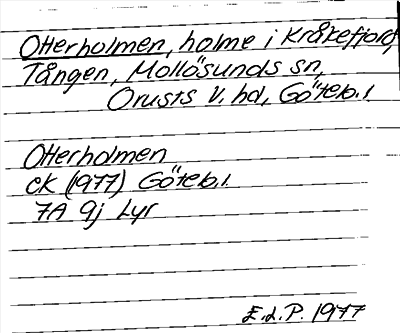 Otterholmen, holme i Kråkefjord,
Tången, Mollösunds sn,
Orusts V. hd, Göteb. l.
Otterholmen
EK (1977) Göteb. l.
7A 9j Lyr
E.L.P. 1977